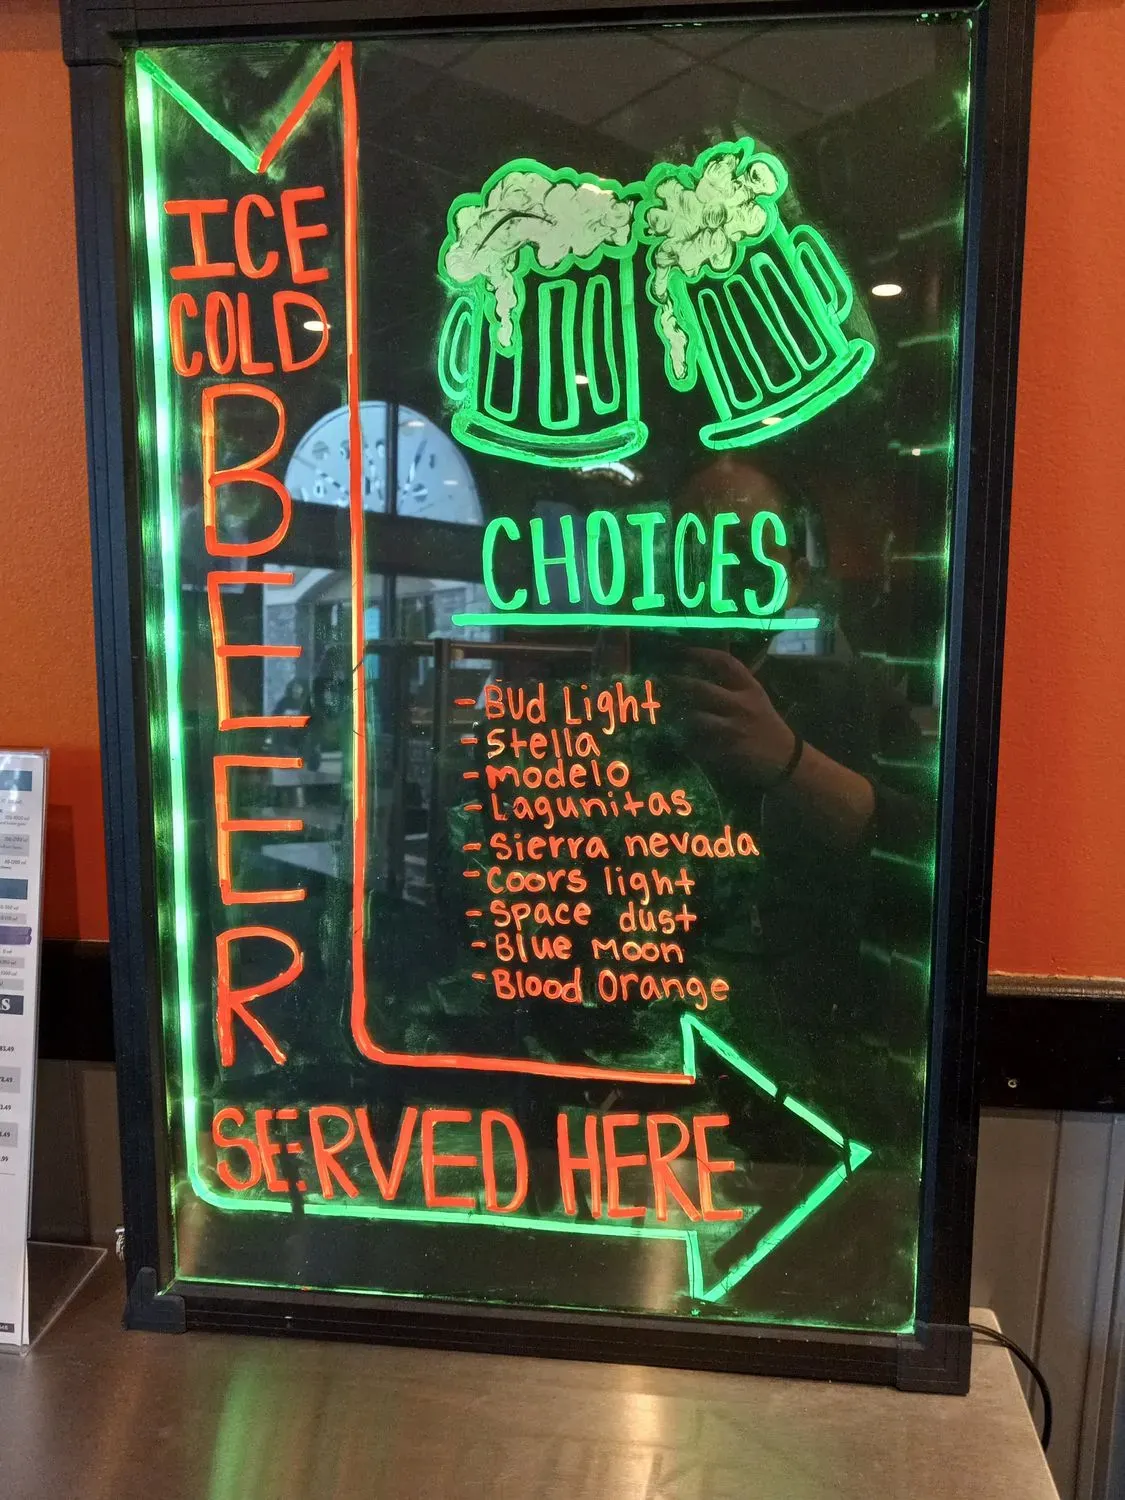 ICE
COLD
BEER
SERVED HERE
CHOICES
- Bud Light
- Stella
- modelo
- Lagunitas
- Sierra nevada
- Coors light
- Space dust
- Blue Moon
- Blood Orange